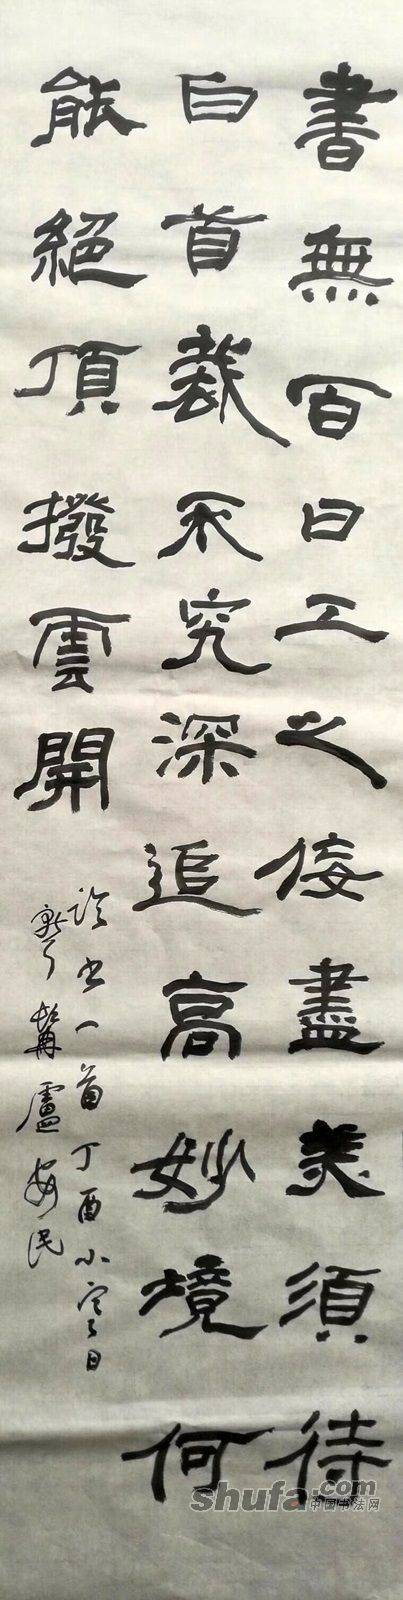 書無百日工之佞盡美須待
白首裁不究深追高妙境何
能絕頂撥雲開
論書一首丁酉小寒日
聾髯廬安民
shufa.com
中国书法网